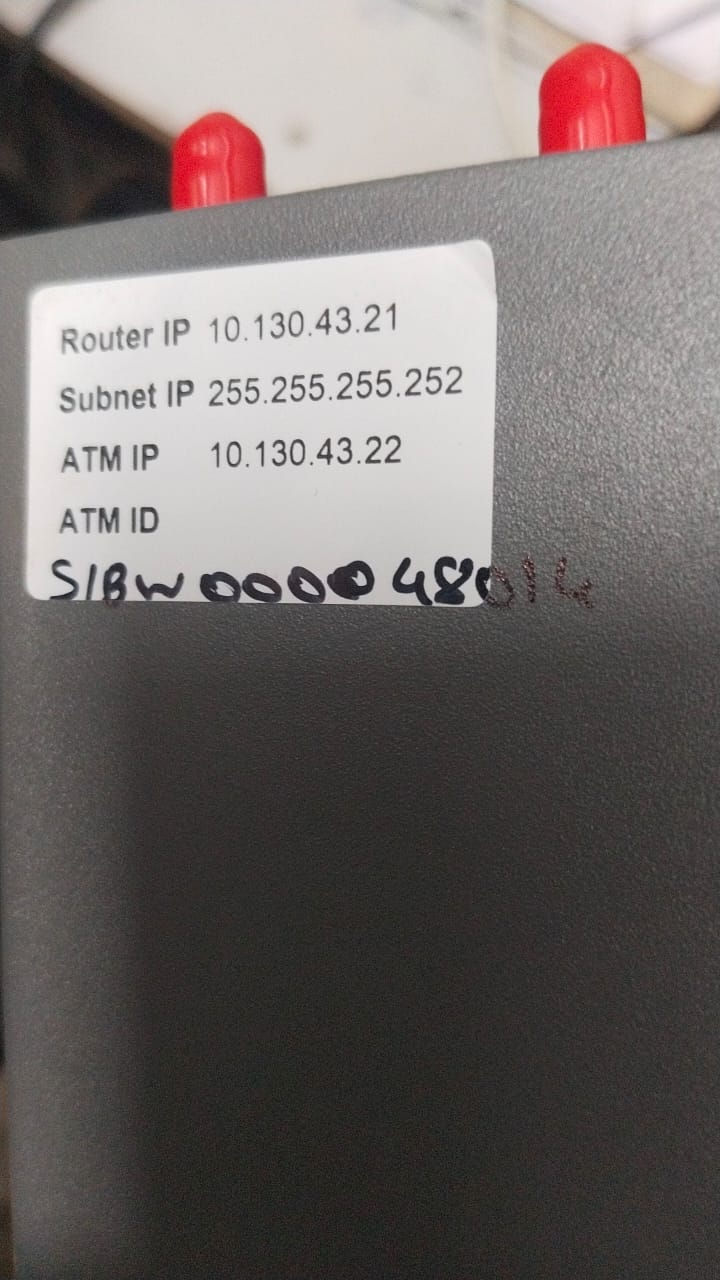 Router IP 10.130.43.21
Subnet IP 255.255.255.252
ATM IP 10.130.43.22
ATM ID
S1BW000048014